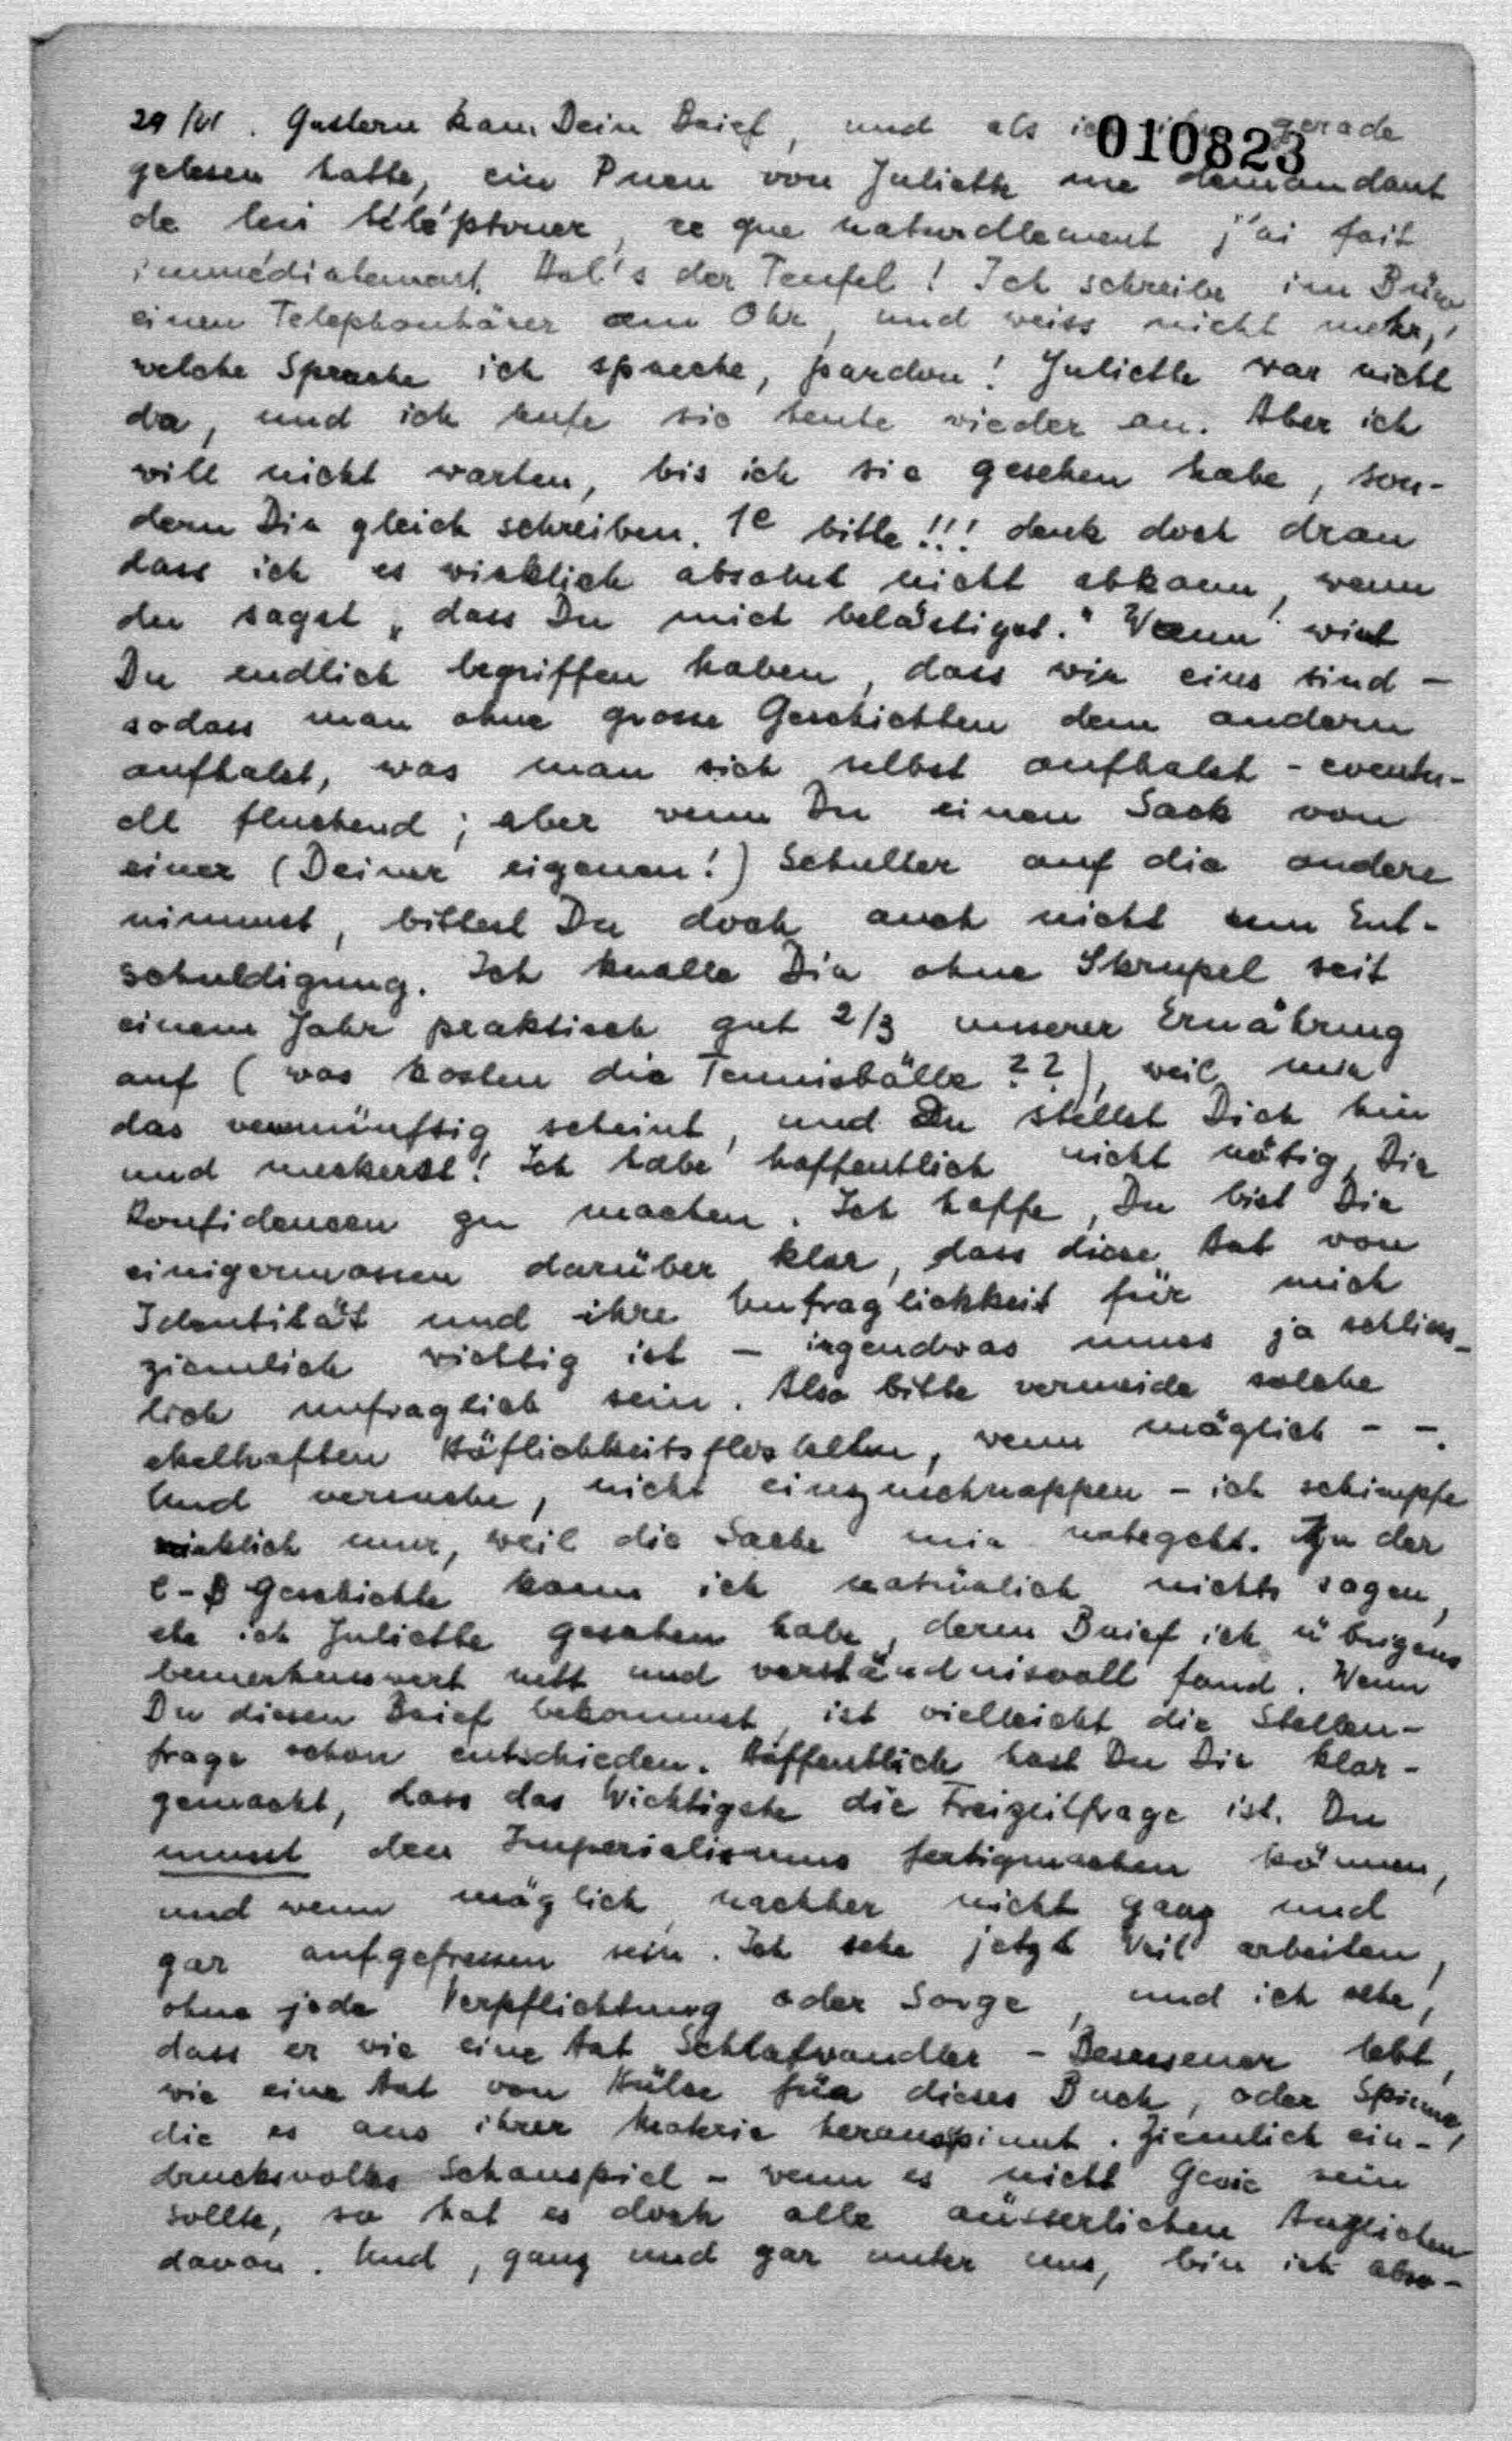 29/VI. Gestern kam Dein Brief, und als ich ihn gerade
010823
gelesen hatte, ein Pneu von Juliette me demandant
de lui téléphoner, ce que naturellement j'ai fait
immédiatement. Hol's der Teufel! Ich schreibe im Büro
einen Telephonhörer am Ohr, und weiss nicht mehr,
welche Sprache ich spreche, pardon! Juliette war nicht
da, und ich rufe sie heute wieder an. Aber ich
will nicht warten, bis ich sie gesehen habe, son-
dern Dir gleich schreiben. 1e bitte!!! denk doch dran
dass ich es wirklich absolut nicht abkann, wenn
du sagst „dass Du mich belästigst." Wann wirst
Du endlich begriffen haben, dass wir eins sind -
sodass man ohne grosse Geschichten dem andern
aufhalst, was man sich selbst aufhalst - eventu-
ell fluchend; aber wenn Du einen Sack von
einer (Deiner eigenen!) Schulter auf die andere
nimmst, bittest Du doch auch nicht um Ent-
schuldigung. Ich knalle Dir ohne Skrupel seit
einem Jahr praktisch gut 2/3 unserer Ernährung
auf (was kosten die Tennisbälle??), weil mir
das vernünftig scheint, und Du stellst Dich hin
und meckerst! Ich habe hoffentlich nicht nötig, Dir
Konfidenzen zu machen. Ich hoffe, Du bist Dir
einigermassen darüber klar, dass diese Art von
Identität und ihre Unfraglichkeit für mich
ziemlich wichtig ist - irgendwas muss ja schliess-
lich unfraglich sein. Also bitte vermeide solche
ekelhaften Höflichkeitsfloskeln, wenn möglich - -.
Und versuche, nicht einzuschnappen - ich schimpfe
wirklich nur, weil die Sache mir nahegeht. Zu der
C-B Geschichte kann ich natürlich nichts sagen,
ehe ich Juliette gesehen habe, deren Brief ich übrigens
bemerkenswert nett und verständnisvoll fand. Wenn
Du diesen Brief bekommst, ist vielleicht die Stellen-
frage schon entschieden. Hoffentlich hast Du Dir klar-
gemacht, dass das Wichtigste die Freizeitfrage ist. Du
musst den Imperialismus fertigmachen können,
und wenn möglich, nachher nicht ganz und
gar aufgefressen sein. Ich sehe jetzt Veil arbeiten,
ohne jede Verpflichtung oder Sorge, und ich sehe,
dass er wie eine Art Schlafwandler - Besessener lebt,
wie eine Art von Hülse für dieses Buch, oder Spinne,
die es aus ihrer Materie herausspinnt. Ziemlich ein-
drucksvolles Schauspiel - wenn es nicht Genie sein
sollte, so hat es doch alle äusserlichen Anzeichen
davon. Und, ganz und gar unter uns, bin ich abso-